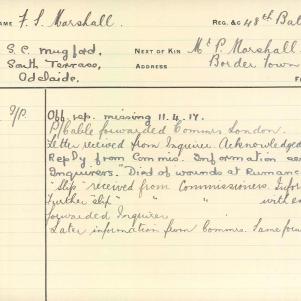 NAME F. S. Marshall.
REG. &c 48th Bat
S. C. Mugford,
South Terrace,
Adelaide.
NEXT OF KIN Mr P. Marshall.
ADDRESS Border Town
Off. rep. missing 11.4.17.
P/Cable forwarded Commrs London.
Letter received from Inquirer Acknowledged
Reply from Commis. Information
Inquirers". Died of wounds at
"Slip" received from Commissioners.
Further "slip" " " with
forwarded Inquirer
Later information from Commrs. Same forw